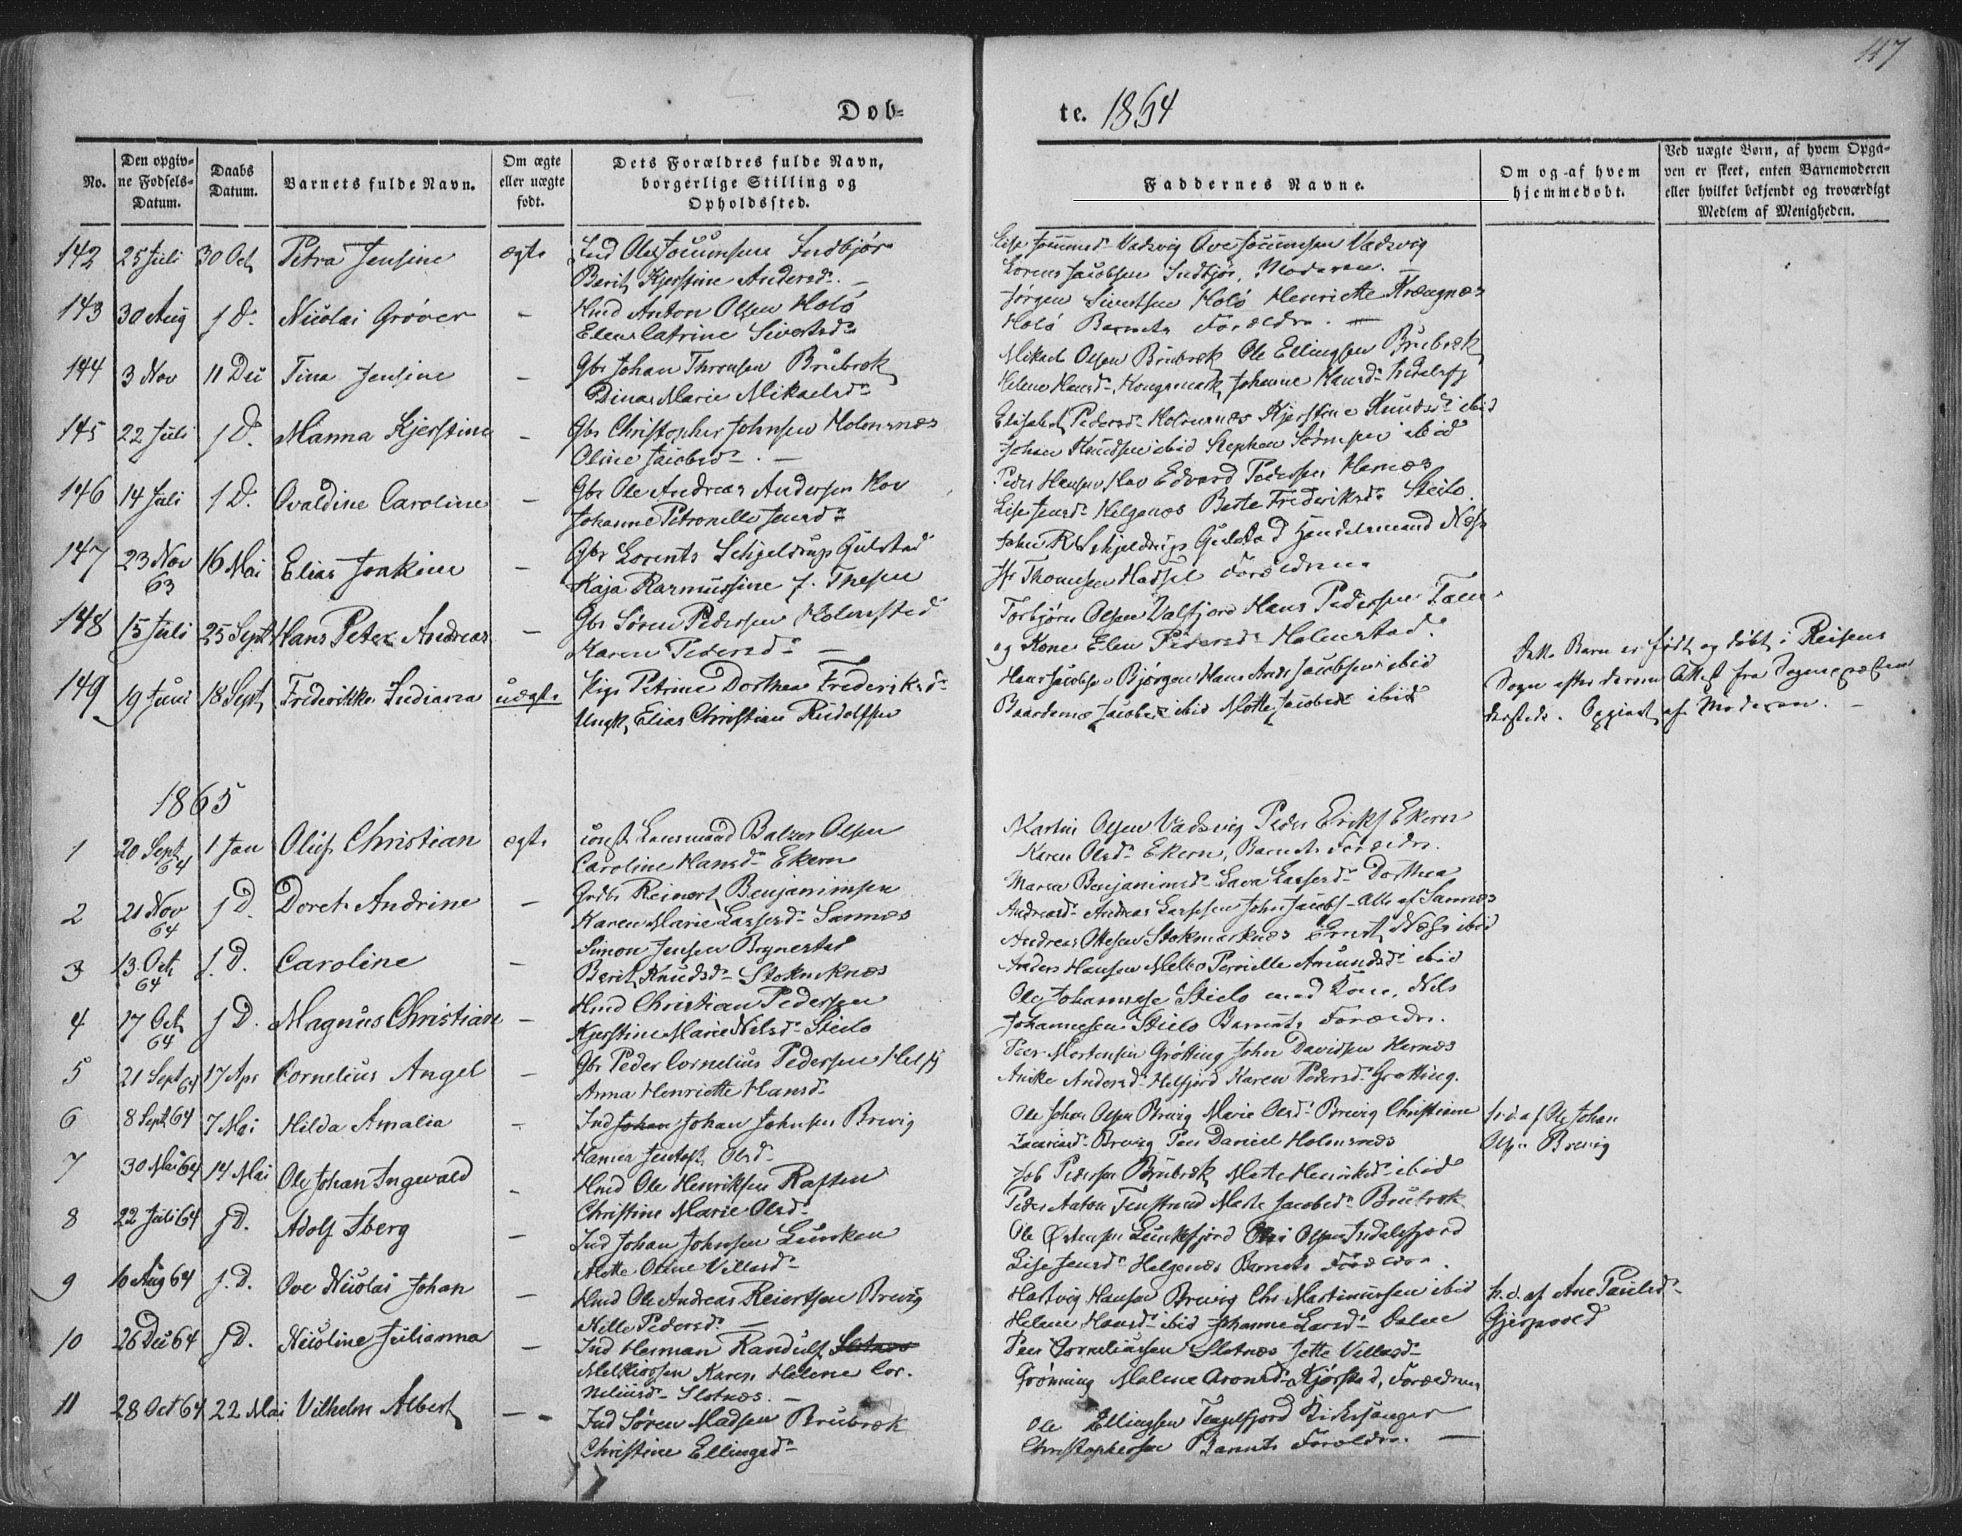 117
Døb-
te. 1864
No.
Den opgiv-
ne Fødsels-
Datum.
Daabs
Datum.
Barnets fulde Navn.
Om ægte
eller uægte
født.
Dets Forældres fulde Navn,
borgerlige Stilling og
Opholdssted.
Faddernes Navne.
Om og af hvem
hjemmedøbt.
Ved uægte Børn, af hvem Opgi-
ven er skeet, enten Barnemoderen
eller hvilket bekjendt og troværdigt
Medlem af Menigheden.
142 25 Juli 30 Oct Petra Jensine ægte Ind Ole
Berit Kjerstine Andersd.
Vadsvig Ove Vadsvig
Lorens Jacobsen Indbjør, Moderen.
143 30 Aug s D. Nicolai Grøver - Hmd Anton Olsen Holø
Elen Catrine Sivertsd
Jørgen Sivertsen Holø Henriette Krængnæs
Holø Barnets Forældre. -
144 3 Nov 11 Dec Tina Jensine - Gbr Johan Thronsen Brubræk
Dina Marie Mikaelsd-
Mikael Olsen Brubræk Ole Ellingsen Brubræk
Helene Hansd- Johanne Hansd-
145 22 Juli s D. Manna Kjerstine - Gbr Christopher Johnsen Holmsnæs
Oline Jacobsd-. -
Elisabet Pedersd- Holmsnæs Kjerstine Knudsd- ibid
Johan Knudsen ibid Stephen ibid
146 14 Juli s D. Ovaldine Caroline - Gbr Ole Andreas Andersen Hov
Johanne Petronelle Jensd-
Peder Hansen Hov Edvard Pedersen Hernæs
Lise Jensd- Helgenæs Berte Frederiksd- Steilo.
147 23 Nov
63 16 Mai Elias Joakim - Gbr Lorents Schjeldrup Gulstad
Kaja Rasmussine f. Thesen
John R Schjeldrup Gulstad Handelsmand
Thomesen Hadsel Forældrene
148 15 Juli 25 Sept Hans Peter Andreas - Gbr Søren Pedersen Holmsted
Karen Pedersd- -
Torbjørn Olsen Valfjord Hans Pedersen
og Kone Elen Pedersd- Holmstad.
149 19 Juni 18 Sept Frederikke Indiana uægte Pige Petrine Dorthea Frederiksd-
Ungk, Elias Christian Rudolfsen
Hans Jacobsen Bjørgen Hans And Jacobsen ibid
Jacobsd ibid Mette Jacobsd ibid
Dette Barn er født og døbt i Reisens
Sogn efter derom Attest fra Sognepresten
dersteds. Opgivet af Moderen. -
1865
1 20 Sept
64 1 Jan Oluf Christian ægte const Lensmand Balzer Olsen
Caroline Hansd- Ekern
Martin Olsen Vadsvig Peder Eriks Ekern
Karen Olsd- Ekern, Barnets Forældre.
2 21 Nov
64 s D. Doret. Andrine - Gdbr Reinert Benjaminsen
Karen Marie Larsesd- Sannæs
Maren Benjaminsd- Sava Larsesd- Dorthea
Andreasd- Andreas Larssen John Jacobs- Alle af Sannæs
3 13 Oct
64 s. D. Caroline - Simon Jensen Brynestad
Berit Knudsd- Stokmknæs
Andreas Ottesen Stokmarknæs Ernst Næss ibid
Anders Hansen Melbo Pernille Amundsd- ibid
4 17 Oct
64 s D. Magnus Christian - Hmd Christian Pedersen
Kjerstine Marie Nelsd- Steilo
Ole Johannese Steilo med Kone, Nils
Johannesen Steilo Barnets Forældre.
5 21 Sept 64 17 Apr Cornelius Angel - Gbr Peder Cornelius Pedersen Helfj
Anna Henriette Hansd-
Peer Mortensen Grøtting John Davidsen Hernæs
Anske Andersd- Helfjord Karen Pedersd- Grøtting.
6 8 Sept 64 7 Mai Hilda Amalia - Ind Johan Johan Johnsen Brevig
Hanna Olsd-
Ole Johan Olsen Brevig Marie Olsd- Brevig Christiane
Brevig Peer Daniel Holmsnæs
h.d. af Ole Johan
Olsen Brevig
7 30 Mai 64 14 Mai Ole Johan Ingvald - Hmd Ole Henriksen Raften
Christine Marie Olsd-
Job Pedersen Brubræk Mette Henriksd- ibid
Peder Anton Fenstrand Mette Jacobsd- Brubræk
8 22 Juli 64 s D. Adolf Iberg - Ind Johan Johnsen Lunken
Mette Oline Villasd-
Ole Østensen Lunkefjord Olsen Indalsfjord
Lise Jensd- Helgenæs Barnets Forældre.
9 16 Aug 64 s. D. Ove Nicolai Johan - Hmd Ole Andreas Reiertsen Brevig
Nille Pedersd- -
Hartvig Hansen Brevig Chr Martinussen ibid
Helene Hansd- ibid Johanne Larsd- Dalne
h.d. af Ane Paulsd-
10 26 Dec 64 s D. Nicoline Julianna - Ind Herman Randulf Slotnæs
Melkiorsen Karen Helene Cor.
neliusd- Slotnæs. -
Peer Corneliussen Slotnæs Jette Villasd-
Grønning Malene Aronsd- Kjørstad, Forældrene
11 28 Oct 64 22 Mai Vilhelm Albert - Ind Søren Madsen Brubræk
Christine Ellingsd-
Ole Ellingsen Tengelfjord Kirkesanger
Christophersen Barnets Forældre. -